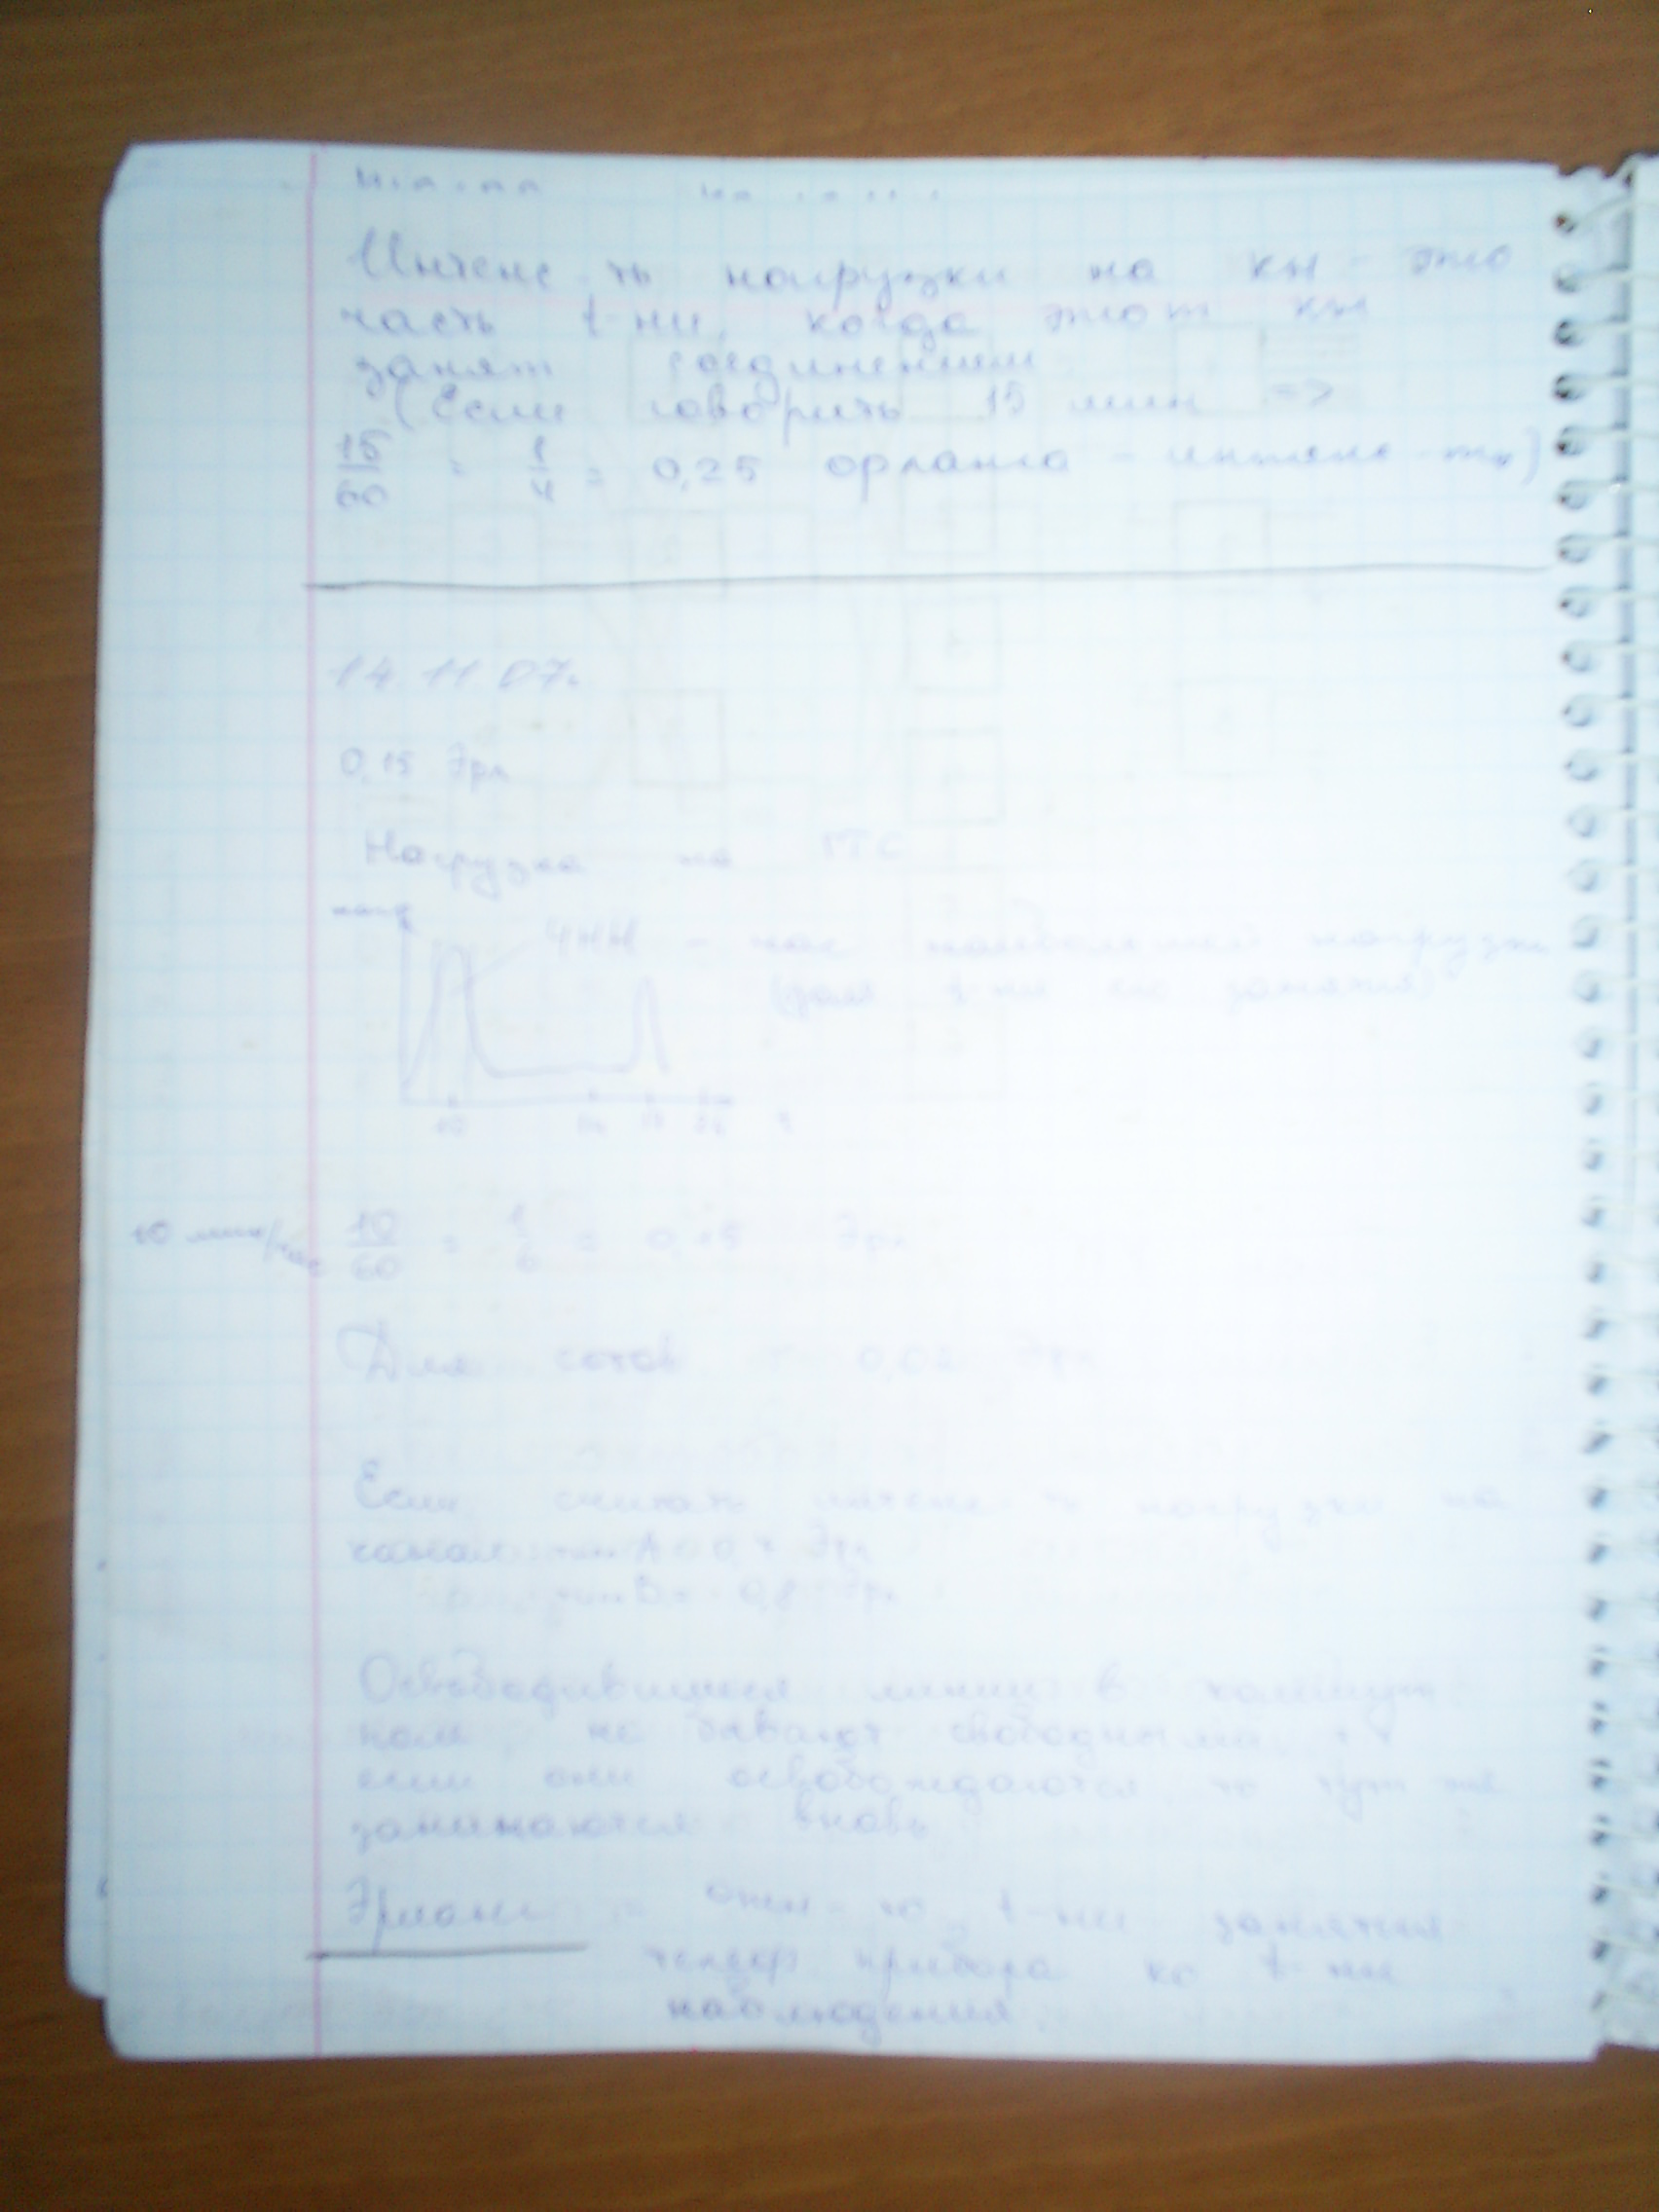 Интенс-ть нагрузки на кн - это
часть t-ни, когда этот кн
занят соединением
(Если говорить 15 мин =>
15/60 = 1/4 = 0,25 эрланга - интенс-ть)
14.11.07г.
0,15 Эрл
Нагрузка на
нагр
ЧНН - час наибольшей нагрузки
(доля t-ни его занятия)
t
10 мин/час 10/60 = 1/6 = 0,15 Эрл
Для сотов 0,02 Эрл
Если считать интенс-ть нагрузки на
канал
Освободившиеся линии в
поле не бывают свободными, т.к
если они освобождаются, то тут же
занимаются вновь
Эрланг - отн-ю t-ни занятия
телеф прибора ко t-ни
наблюдения